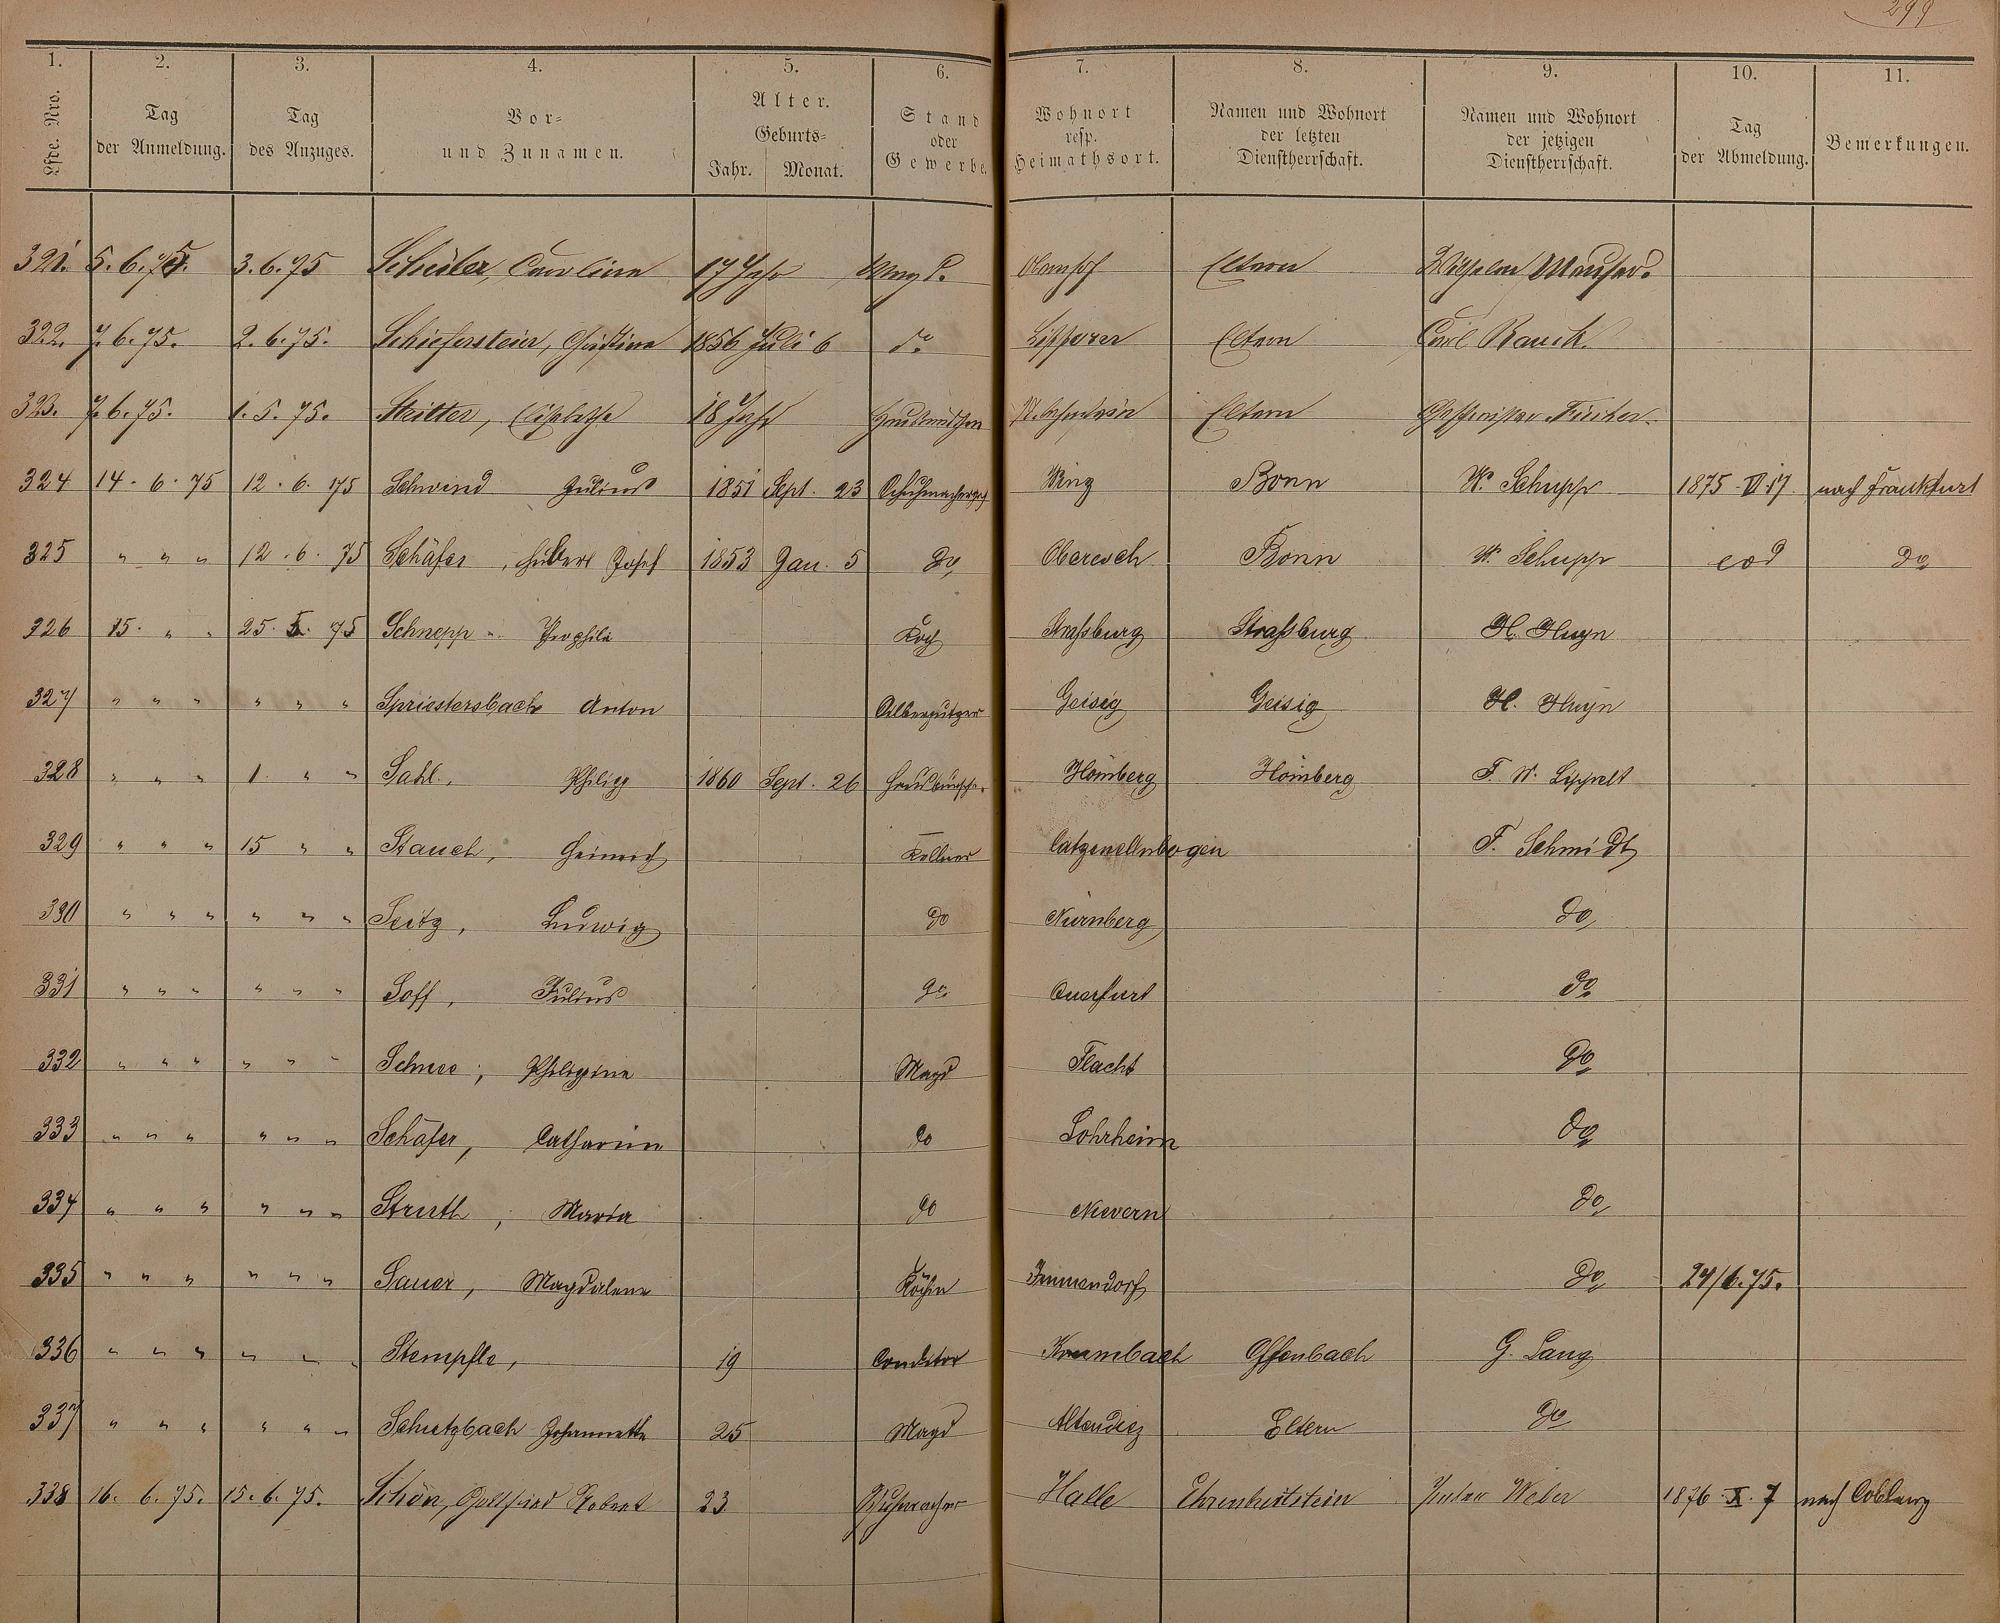 299
1. 2. 3. 4. 5. 6. 7. 8. 9. 10. 11.
Lfde. Nro. Tag der Anmeldung. Tag des Anzuges. Vor- und Zunamen. Alter. Geburts- Jahr. Monat. Stand oder Gewerbe. Wohnort resp. Heimathsort. Namen und Wohnort der letzten Dienstherrschaft. Namen und Wohnort der jetzigen Dienstherrschaft. Tag der Abmeldung. Bemerkungen.
321. 5.6.75. 3.6.75 Caroline 17 Jahr Magd. Eltern Wilhelm
322. 7.6.75. 2.6.75. Schieferstein, Christine 1856 Juli 6 do Eltern Carl Rauch.
323. 7.6.75. 1.5.75. Stritter, 18 Jahr Eltern
324 14. 6. 75 12. 6. 75 Schwind Julius 1851 Sept. 23 Bonn W. Schupp 1875 VI 17. nach Frankfurt
325 " " " 12. 6. 75 Schäfer, Hubert Josef 1853 Jan. 5 do Oberesch Bonn W. Schupp eod do
326 15. " " 25. 5. 75 Schnepp Koch Straßburg Straßburg H. Huyn
327 " " " " " " Spriestersbach Anton Silberputzer Geisig Geisig H. Huyn
328 " " " 1. " " Sahl, Philipp 1860 Sept. 26 Hausbursche. Homberg Homberg F. W. Lippelt
329 " " " 15 " " Stauch, Heinrich Kellner Catzenellnbogen F. Schmidt
330 " " " " " " Seitz, Ludwig do Nürnberg do
331 " " " " " " Soff, Julius do Querfurt do
332 " " " " " " Schnee, Philippine Magd Flacht do
333 " " " " " " Schäfer, Catharine do Lohrheim do
334 " " " " " " Struth, Maria do Nievern do
335 " " " " " " Sauer, Magdalene Köchin Immendorf do 24/6.75.
336 " " " " " " Stempfle, 19 Conditor Krumbach Offenbach G. Lang
337 " " " " " " Schutzbach Johannette 25 Magd Altendiez Eltern do
338 16. 6. 75. 15. 6. 75. Schön, Gottfried Robert 23 Halle Ehrenbreitstein Weber 1876 X. 7 nach Coblenz